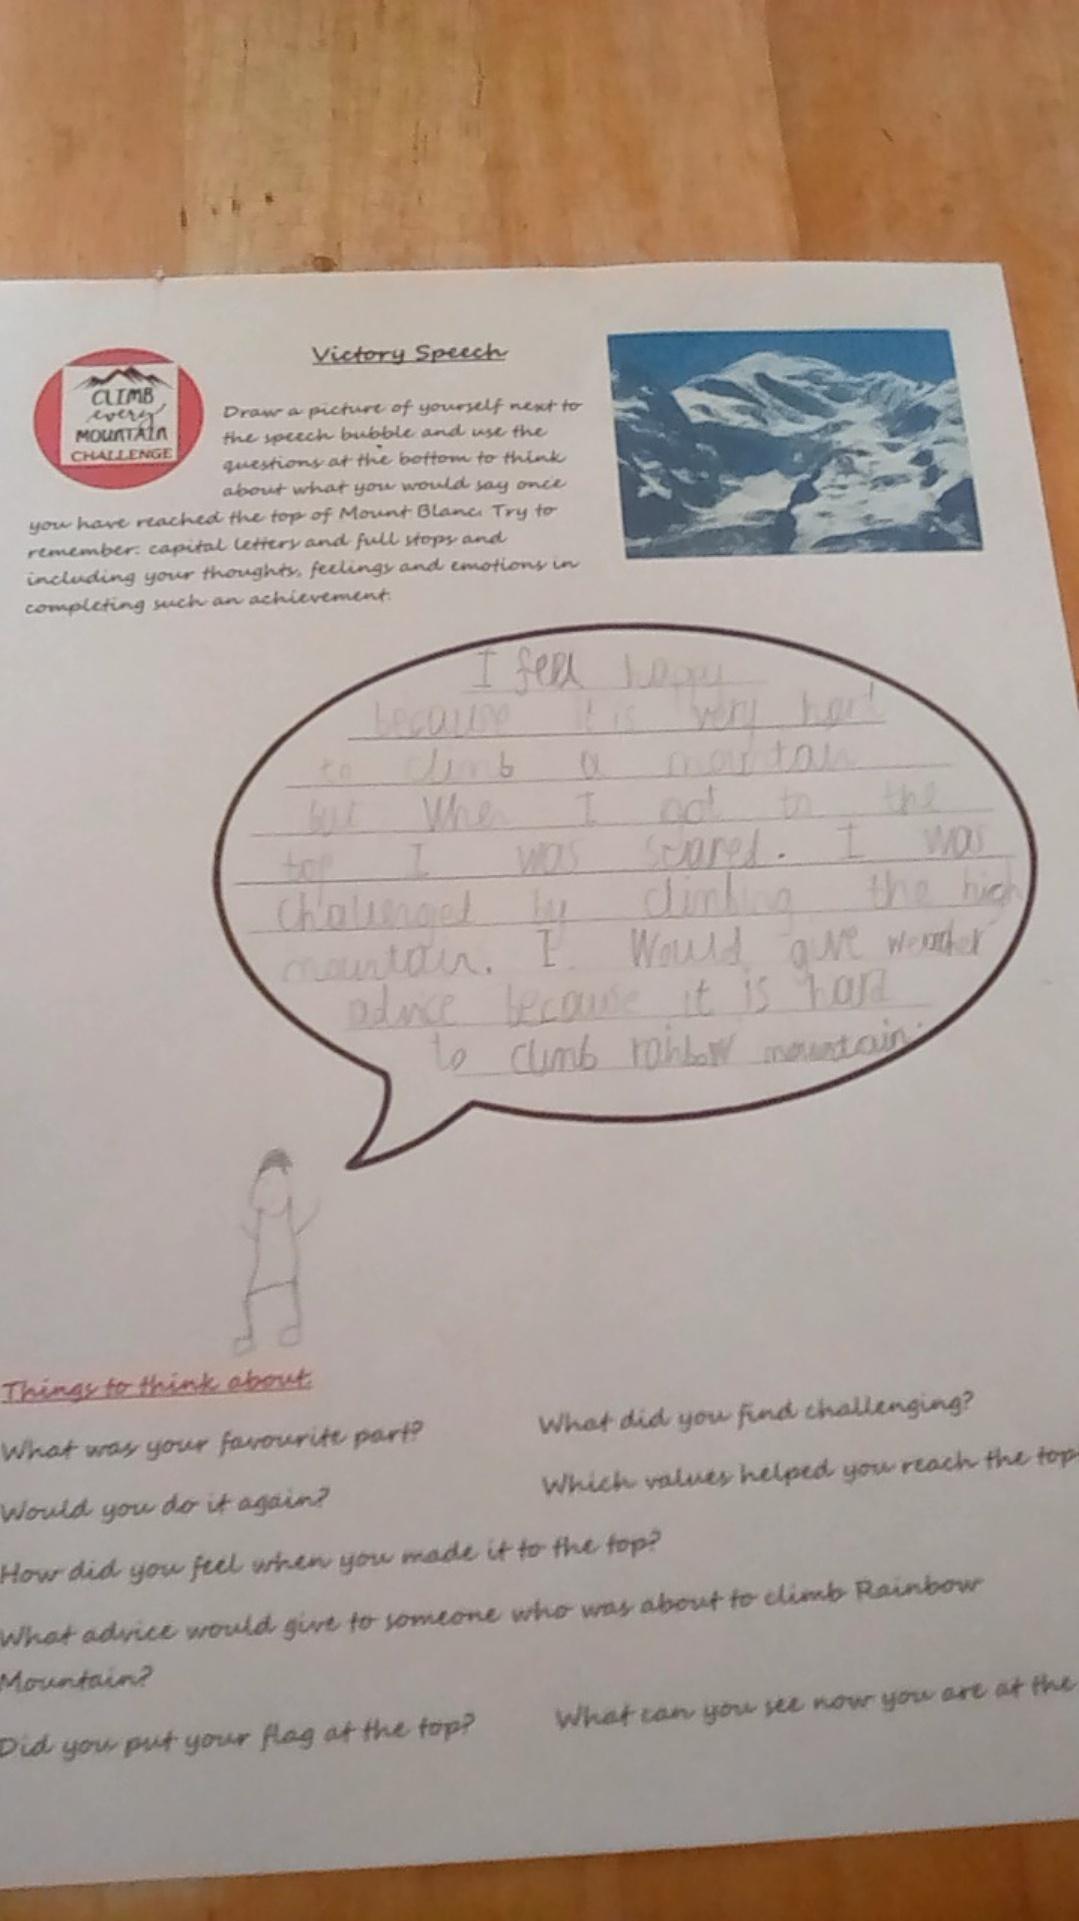 Victory Speech
CLIMB
every
MOUNTAIN
CHALLENGE
Draw a picture of yourself next to
the speech bubble and use the
questions at the bottom to think
about what you would say once
you have reached the top of Mount Blanc. Try to
remember: capital letters and full stops and
including your thoughts, feelings and emotions in
completing such an achievement.
I feel happy
because it is very hard
to climb a mountain
but When I got to the
top I was scared. I was
challenged by climbing the high
mountain. I Would give weather
advice because it is hard
to climb mountain.
Things to think about:
What was your favourite part?
What did you find challenging?
Would you do it again?
Which values helped you reach the top
How did you feel when you made it to the top?
What advice would give to someone who was about to climb Rainbow
Mountain?
Did you put your flag at the top?
What can you see now you are at the